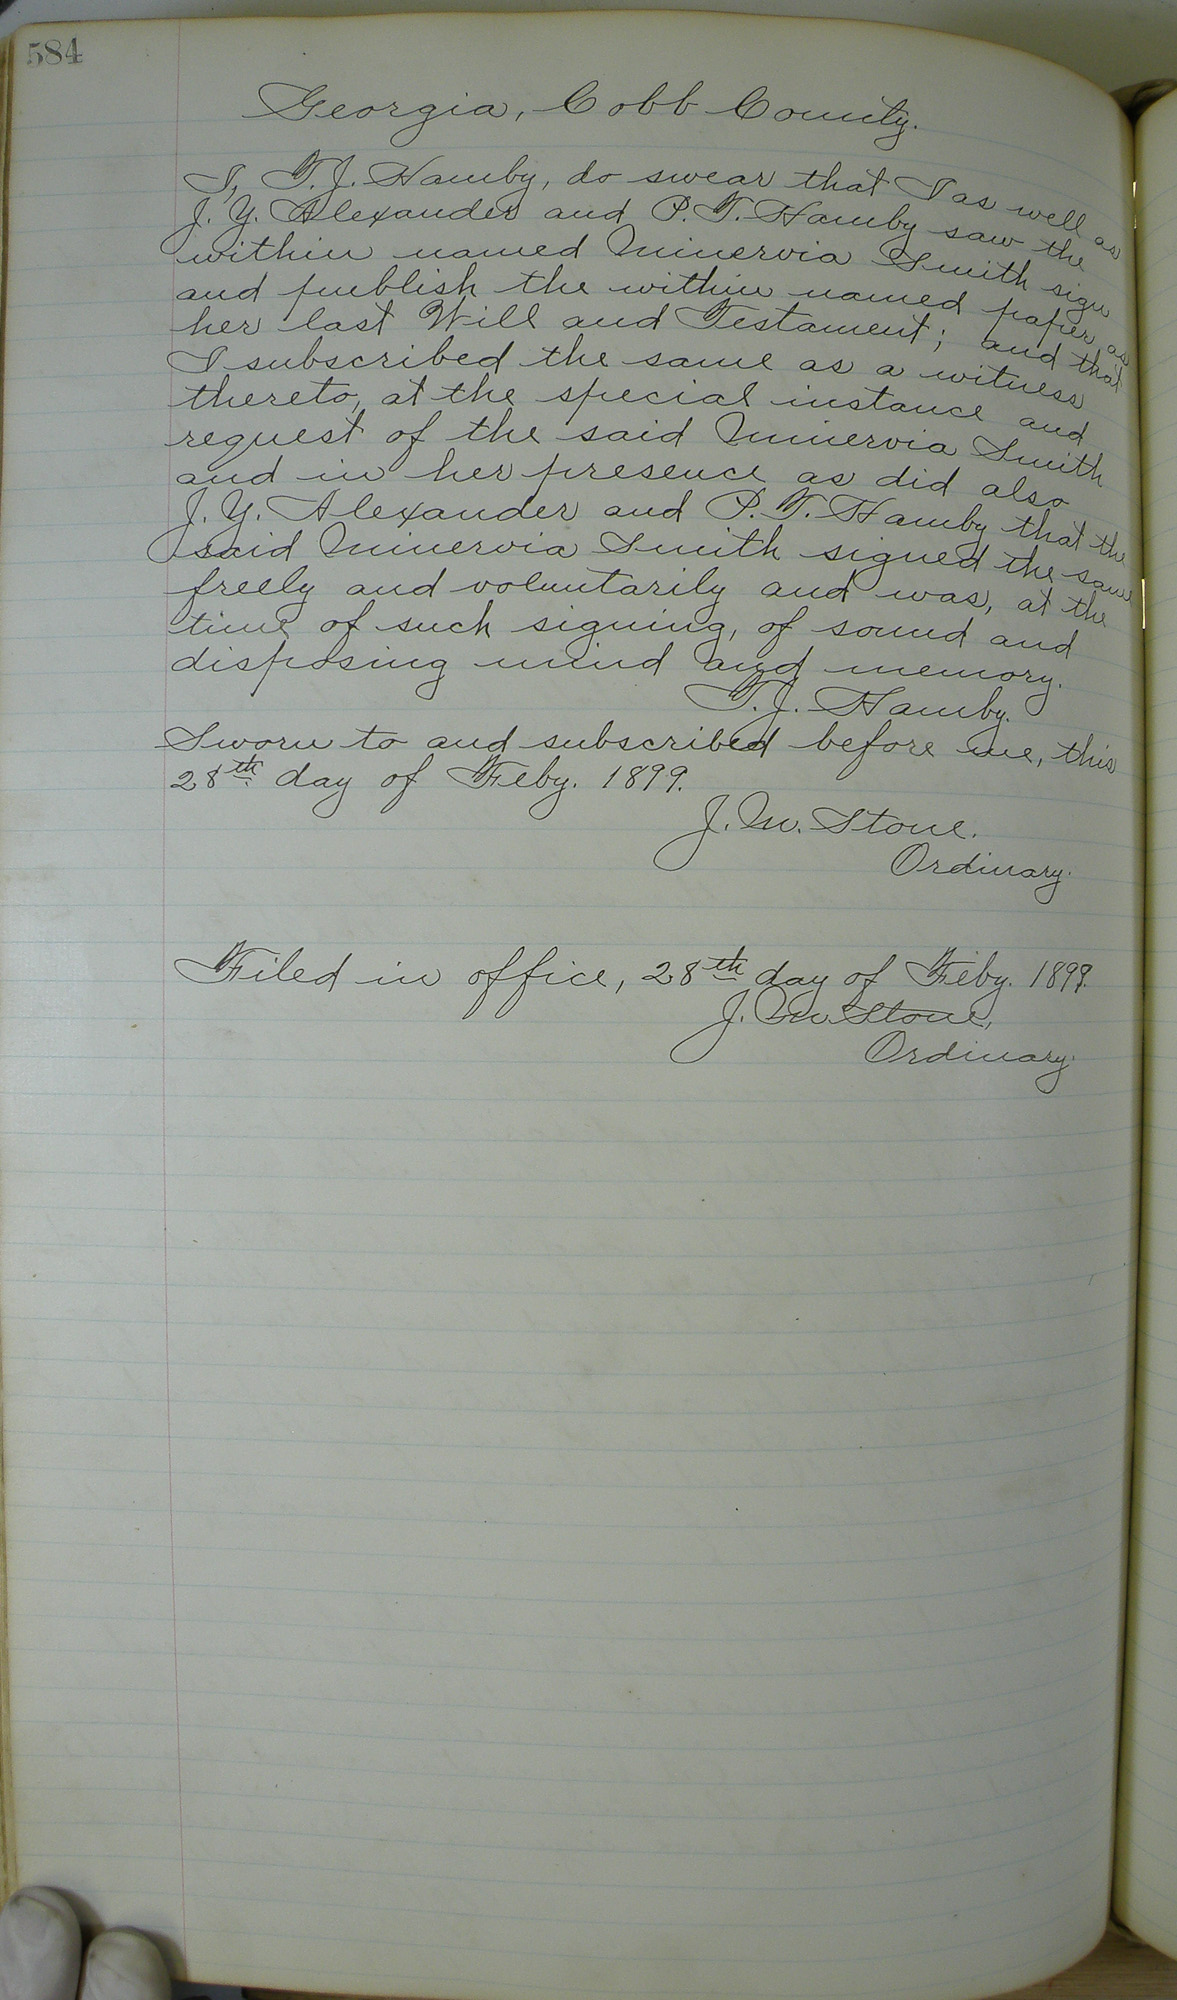 584
Georgia, Cobb County.
I, T. J. Hamby, do swear that I as well as
J. Y. Alexander and P. T. Hamby saw the
within named Minervia Smith sign
and publish the within named paper as
her last Will and Testament; and that
I subscribed the same as a witness
thereto, at the special instance and
request of the said Minervia Smith
and in her presence as did also
J. Y. Alexander and P. T. Hamby that the
said Minervia Smith signed the same
freely and voluntarily and was, at the
time of such signing, of sound and
disposing mind and memory.
T. J. Hamby.
Sworn to and subscribed before me, this
28th day of Feby. 1899.
J. M. Stone.
Ordinary.
Filed in office, 28th day of Feby. 1899.
J. M. Stone,
Ordinary.